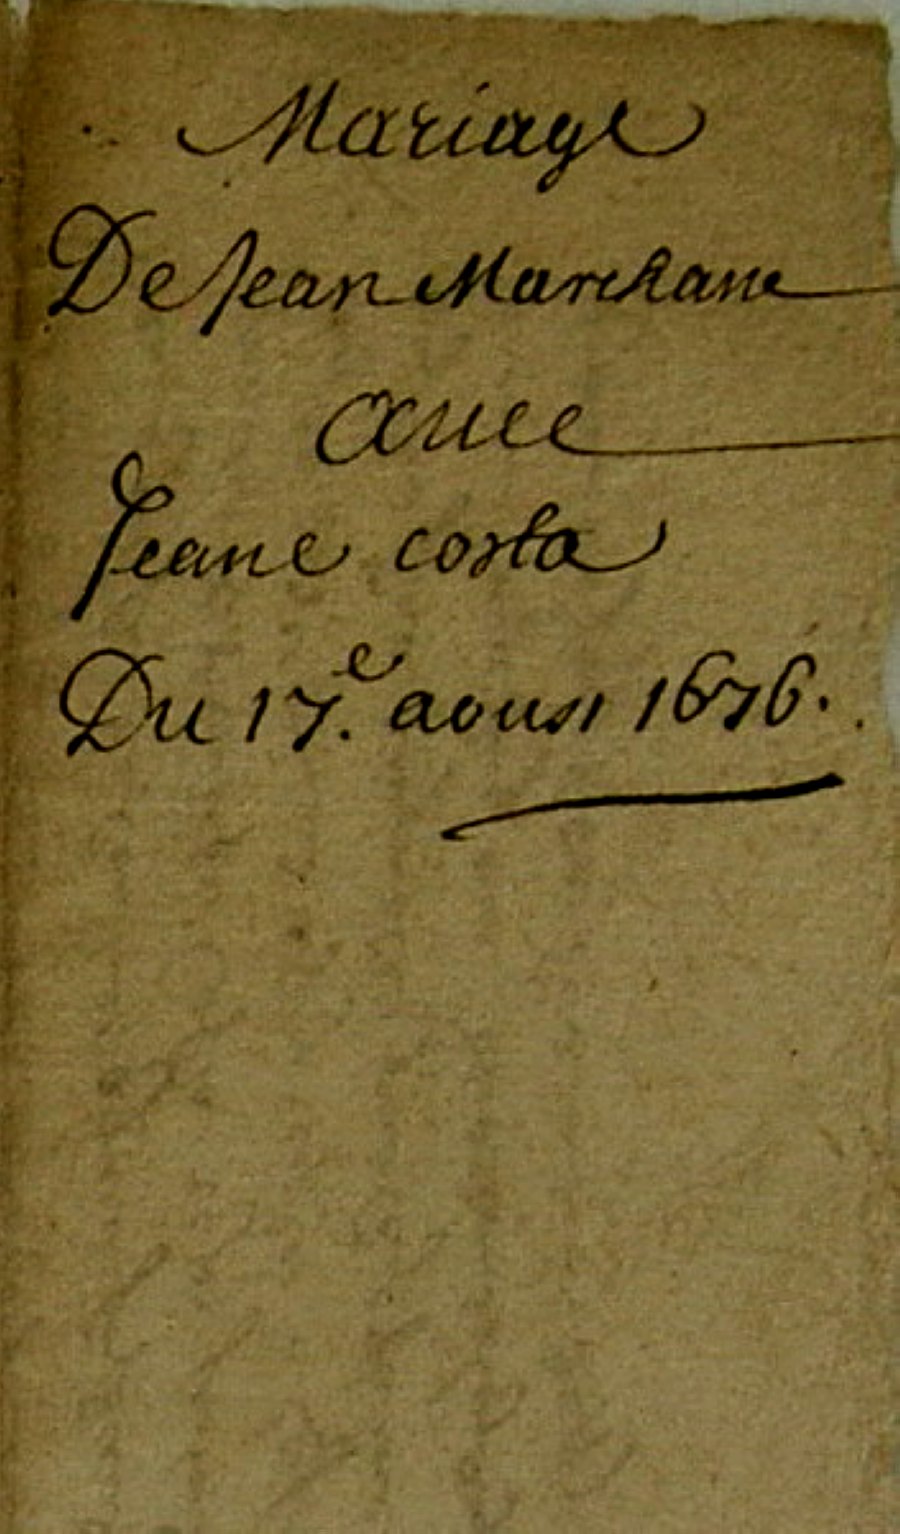 Mariage
De Jean Marchane
auec
Jeane costa
Du 17.e aoust 1676.